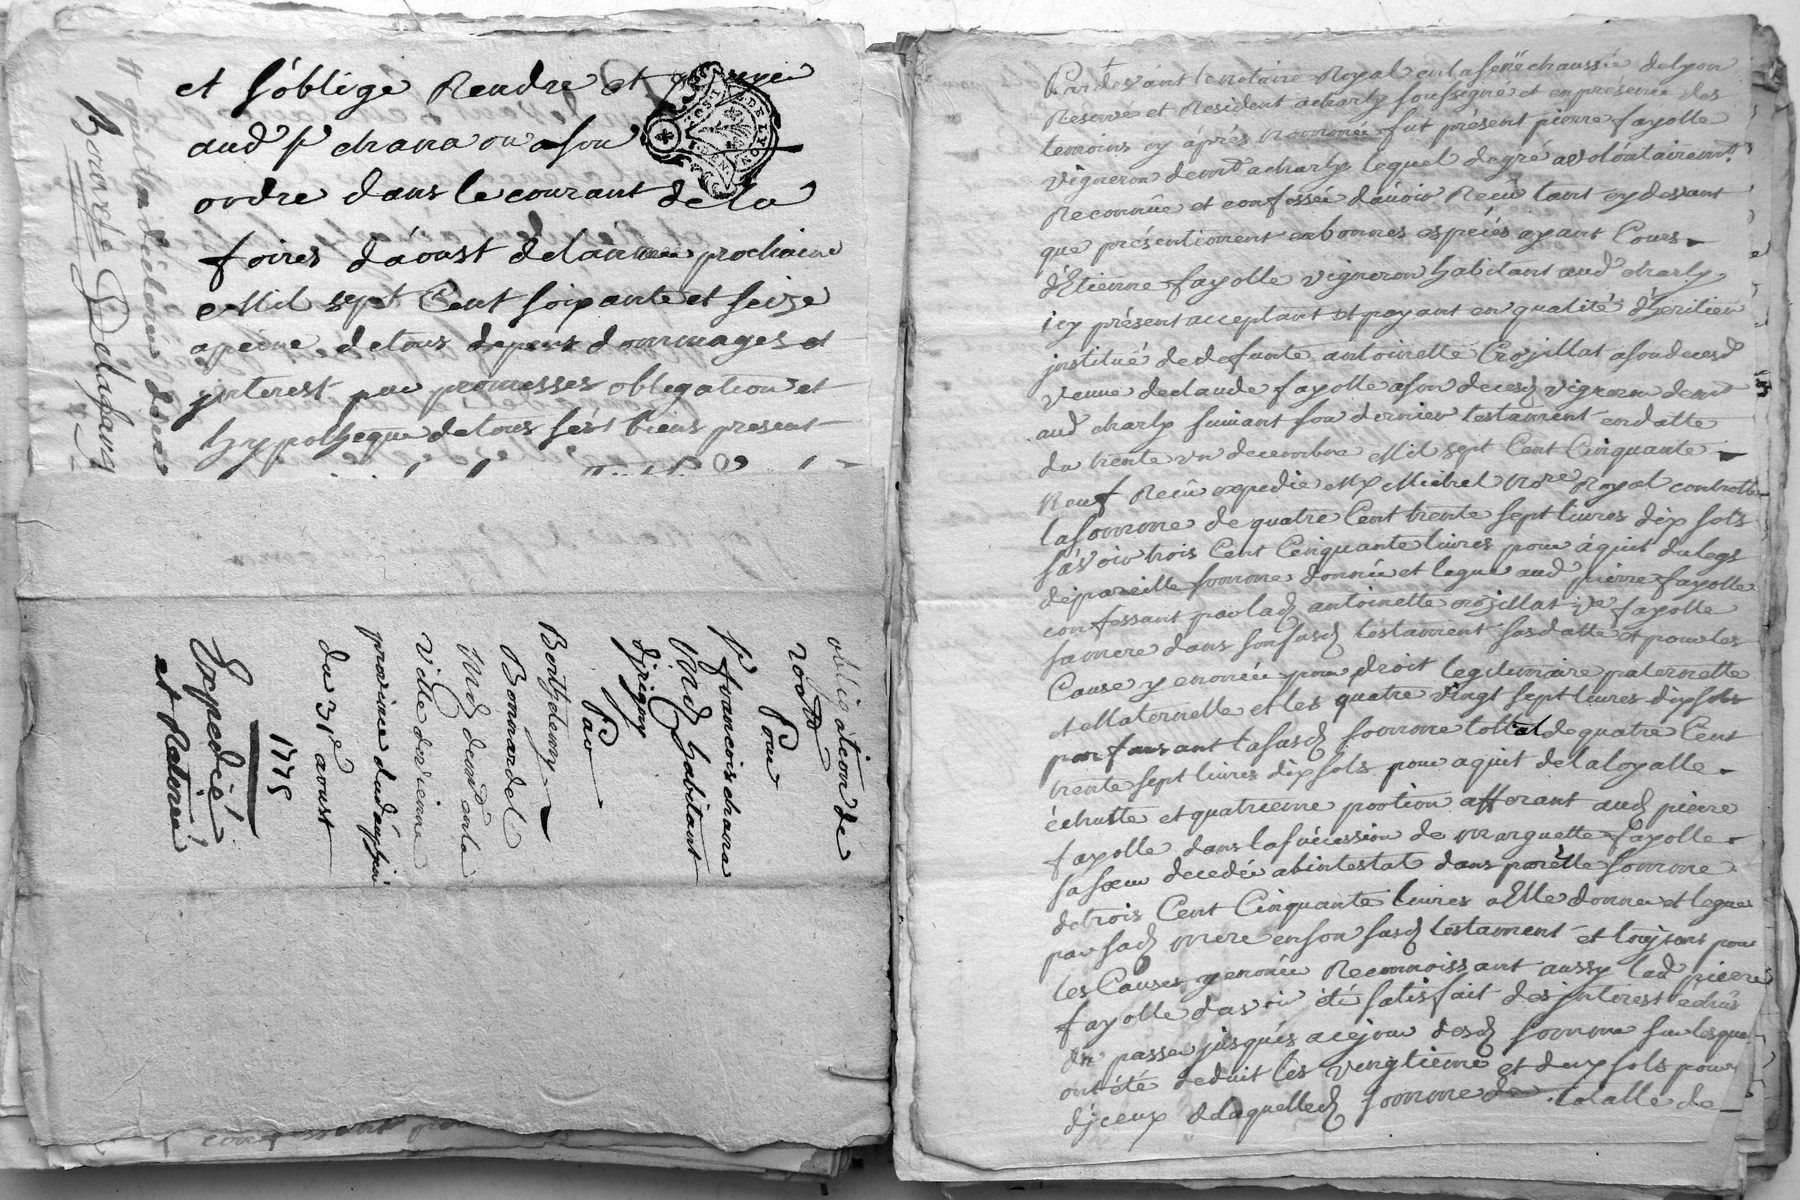 et s'oblige Rendre et
aud. sr. chana ou a son
ordre dans le courant de la
foires d'aoust de lannée prochaine
Mil sept Cent soixante et seize
a peine de tous depens dommages et
jnterest par promesses obligation et
hypotheque de tous ses biens present
Delafay
obligation de
200 ₶
Pour
sr. francois chana
Md. habitant
d'jrigny
Par
Berthelemy
Bonnardel
Md. demt. en la
Ville de vienne
province du dauphiné
du 31e. aoust
1775
Expedié
et Retirée
Par devant le notaire Royal en la senechaussée de Lyon
Reservé et Resident a charly soussigné et en présence des
temoins cy aprés nommés fut présent pierre fayolle
vigneron demt. a charly lequel de gré a volontairemt.
Reconnue et confessée d'avoir Recu tant cy devant
que présentement en bonnes espéces ayant Cours
d'Etienne fayolle vigneron habitant aud. charly
icy présent acceptant et payant en qualité d'heritier
jnstitué de defunte antoinette Crozillat a son decesd.
veuve de claude fayolle a son decesd. vigneron demt.
aud. charly suivant son dernier testament en datte
du trente un decembre Mil sept Cent Cinquante
neuf Recû expedié Me Michel nore. Royal controllé
la somme de quatre Cent trente sept livres dix sols
sávoir trois Cent Cinquante livres pour áquit du legs
de pareille somme donnée et legué aud. pierre fayolle
confessant par lad. antoinette crozillat ve. fayolle
sa mere dans son susd. testament susdatté et pour les
Cause y enoncée pour droit legitimaire paternelle
et Maternelle et les quatre vingt sept livres dix sols
parfaisant la susd. somme tottal de quatre Cent
trente sept livres dix sols pour aquit de la loyalle
échutte et quatrieme portion afferant aud. pierre
fayolle dans la succession de Marguette fayolle
sa sœur decedée abintestat dans pareille somme
de trois Cent Cinquante livres a Elle donnée et legué
par sad. mere en son susd. testament et toujours pour
les Causes y enoncée Reconnoissant aussy led. pierre
fayolle davoir été satisfait des jnterest echus
du passé jusqués a ce jour desd. somme sur lesquel
ont été deduit les vingtieme et deux sols pour
d'jceux de laquelled. somme totalle de